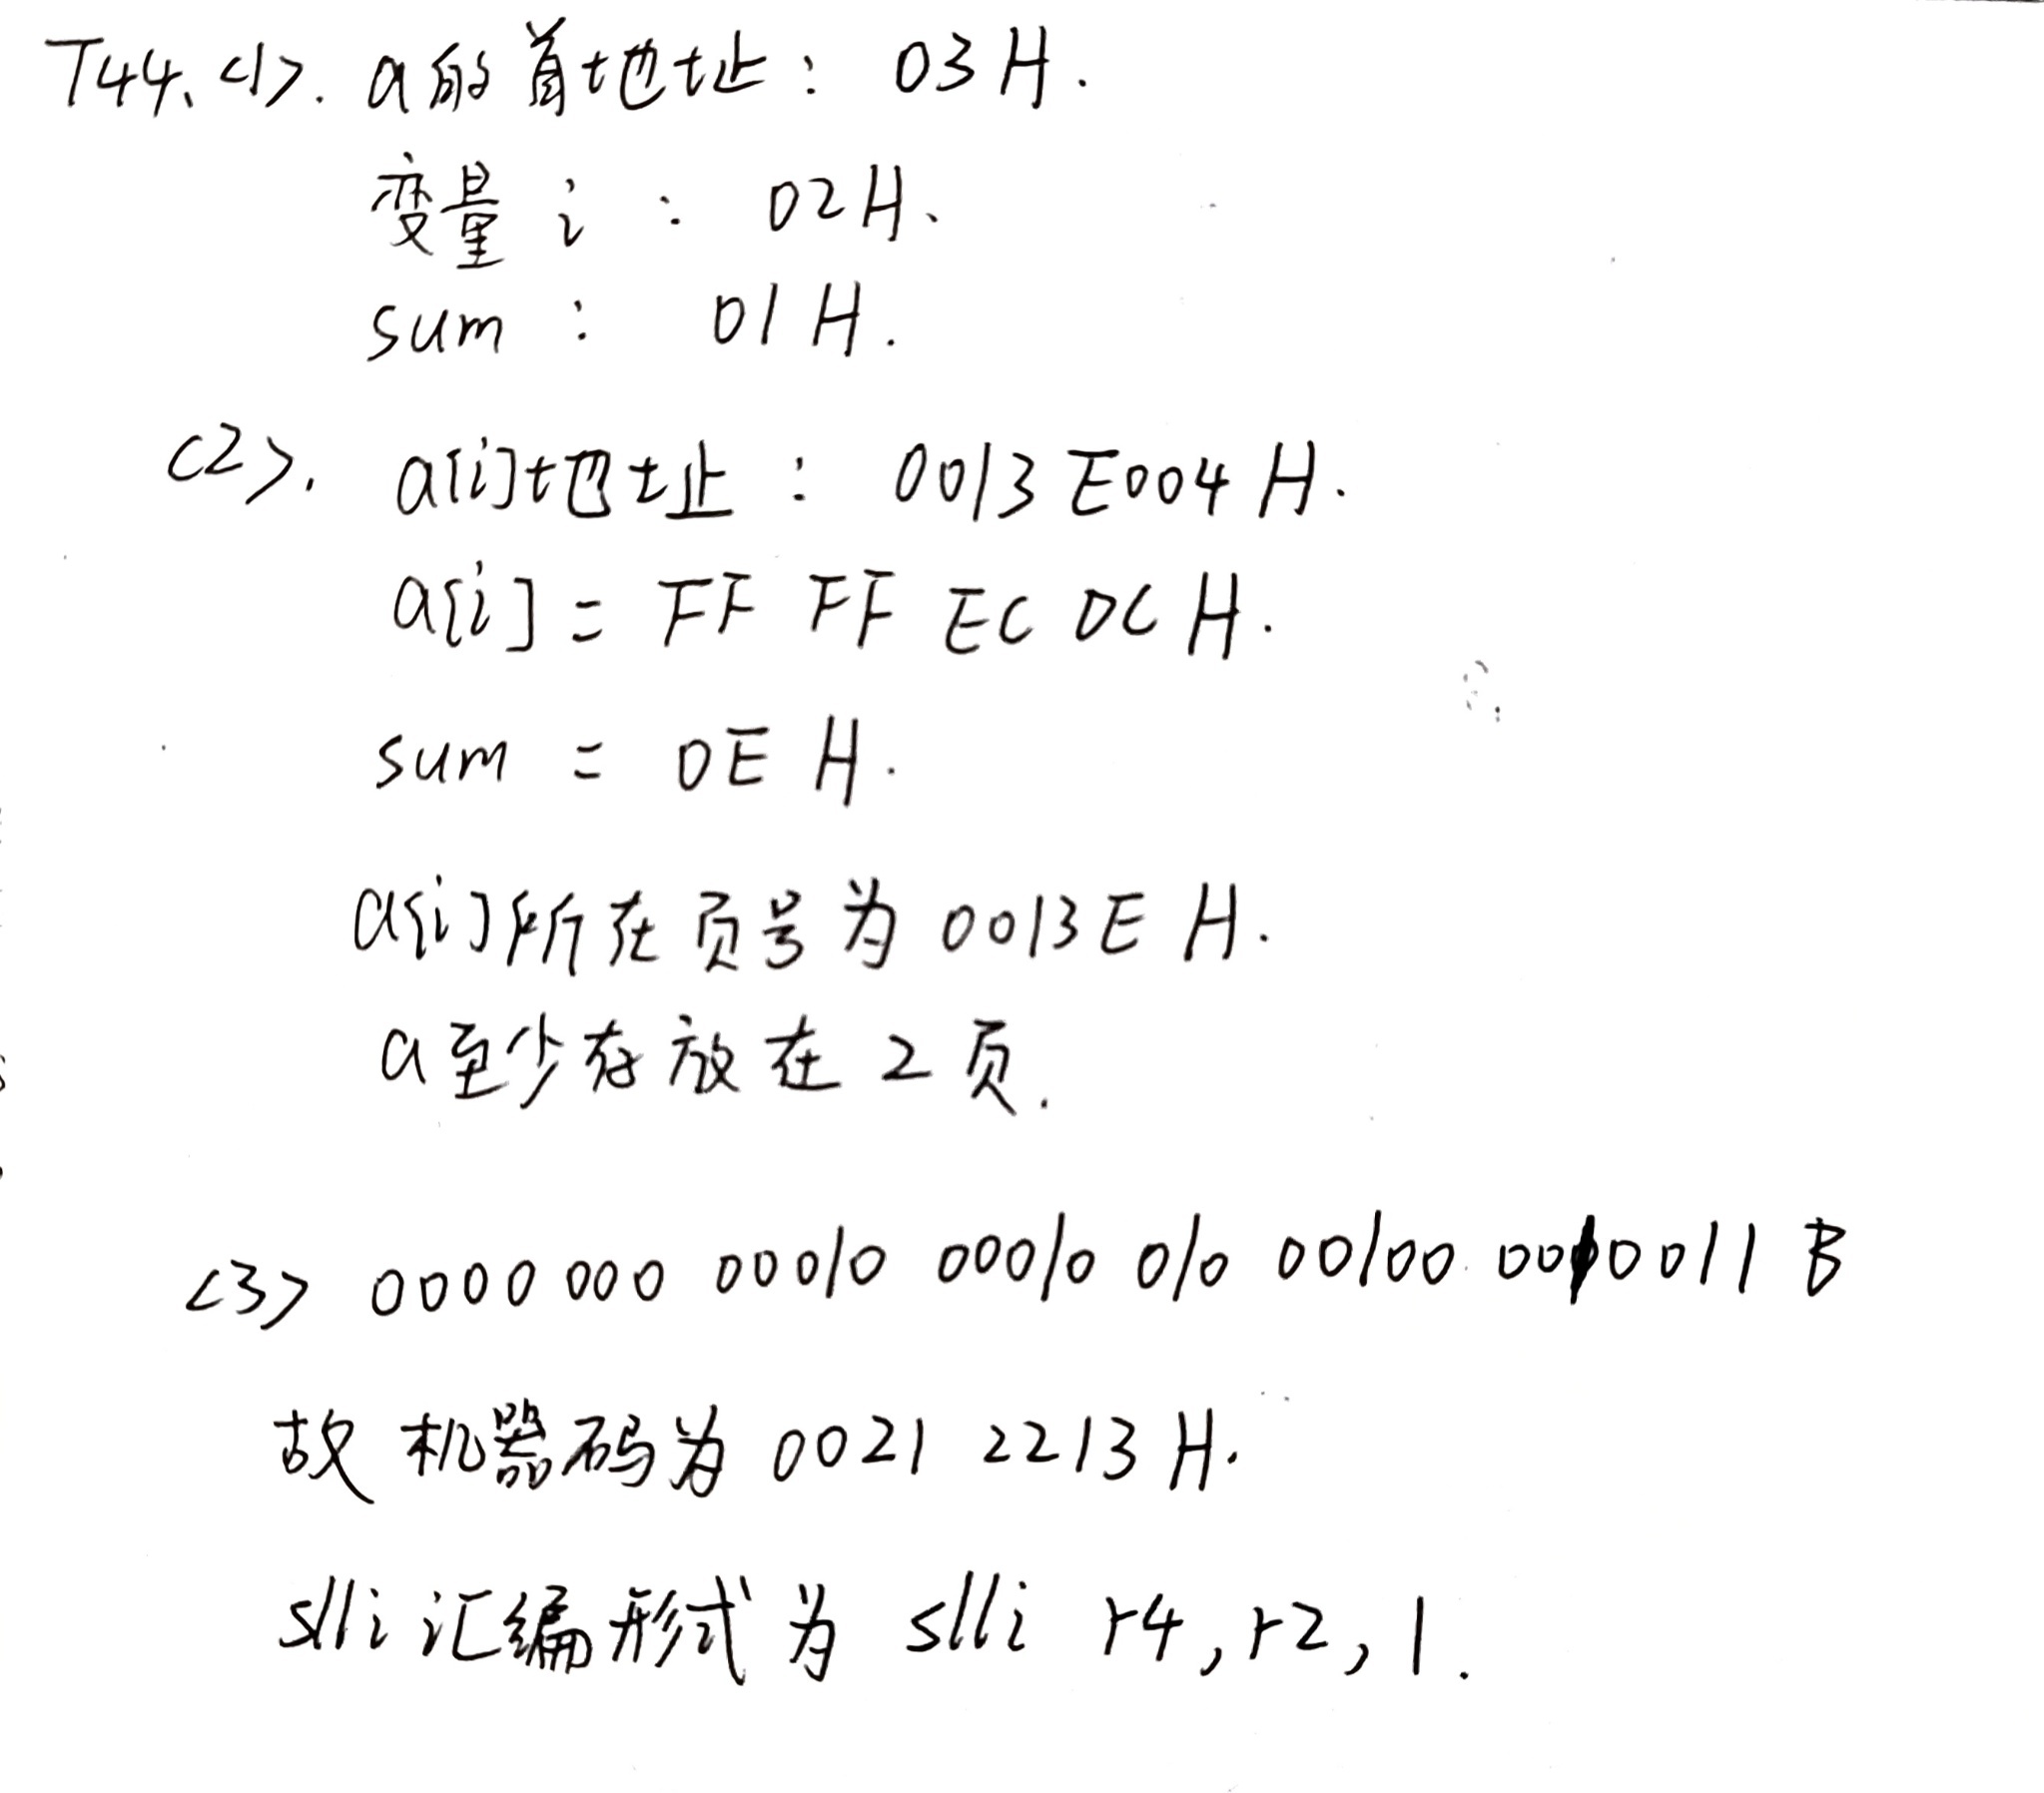 T44. <1>. a的首地址： 03H.
变量 i ： 02H.
sum ： 01H.
<2>. a[i]地址 ： 0013E004H.
a[i] = FF FF EC DC H.
sum = 0E H.
a[i]所在页号为 0013E H.
a至少存放在 2 页.
<3> 0000000 00010 00010 010 00100 0010011 B
故 机器码为 0021 2213H.
slli 汇编形式为 slli r4, r2, 1.